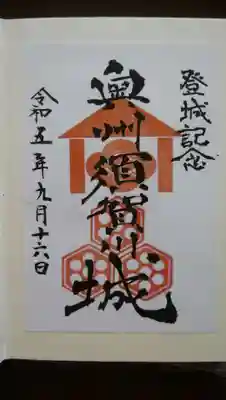 登城記念
奥州須賀川城
令和五年九月十六日